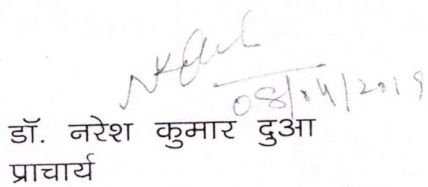 08/04/2019
डॉ. नरेश कुमार दुआ
प्राचार्य